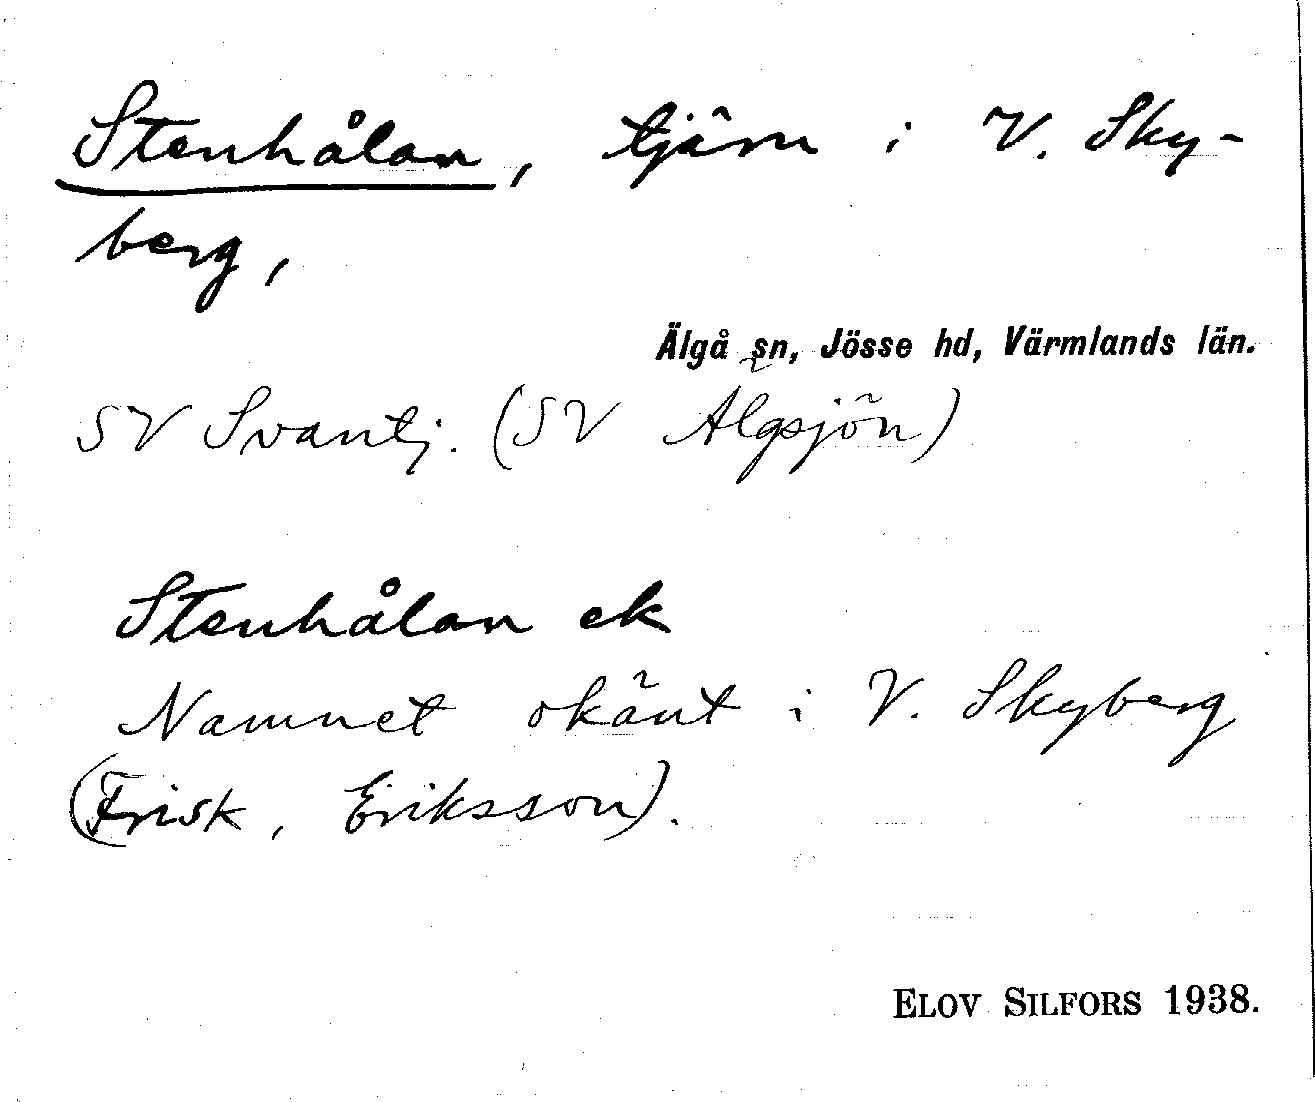 Stenhålan, tjärn i V. Sky-
berg,
Älgå sn, Jösse hd, Värmlands län.
SV Svantj. (SV Älgsjön)
Stenhålan ek
Namnet okänt i V. Skyberg
(Frisk, Eriksson).
ELOV SILFORS 1938.